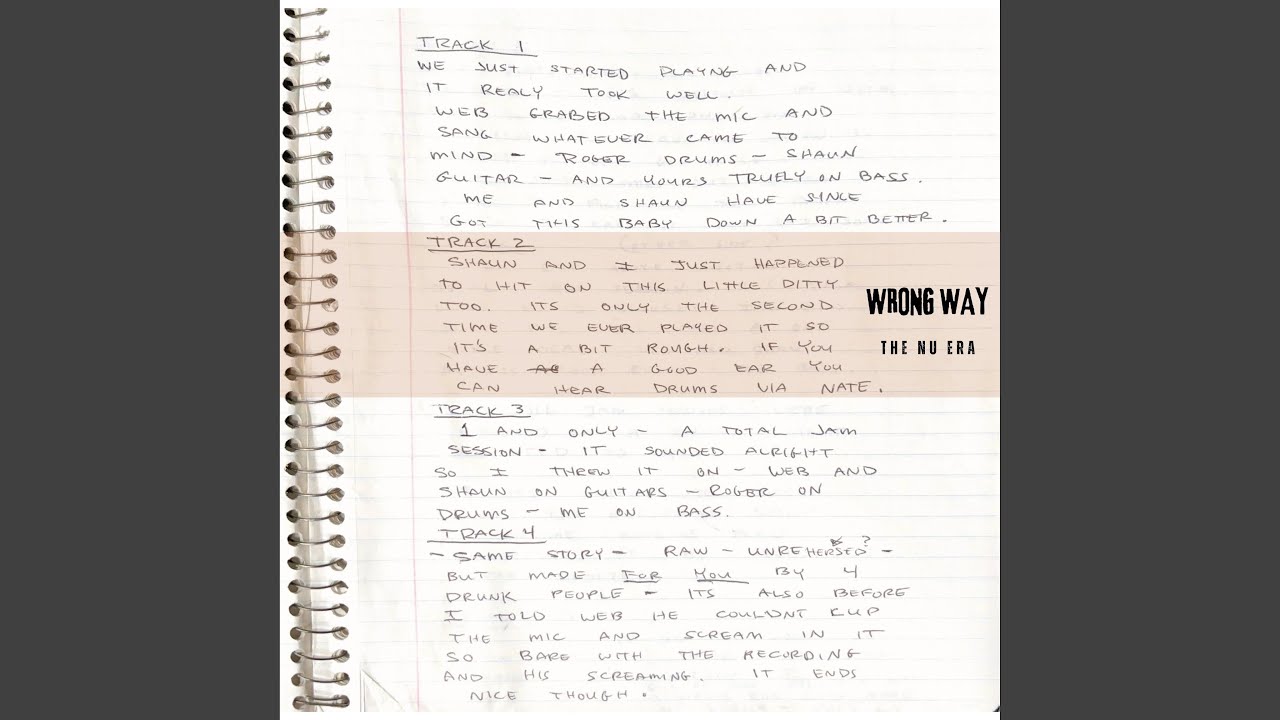 TRACK 1
WE JUST STARTED PLAYNG AND
IT REALY TOOK WELL.
WEB GRABED THE MIC AND
SANG WHATEVER CAME TO
MIND - ROGER DRUMS - SHAUN
GUITAR - AND YOURS TRUELY ON BASS.
ME AND SHAUN HAVE SINCE
GOT THIS BABY DOWN A BIT BETTER.
TRACK 2
SHAUN AND I JUST HAPPENED
TO HIT ON THIS LITTLE DITTY
TOO. ITS ONLY THE SECOND
TIME WE EVER PLAYED IT SO
IT'S A BIT ROUGH. IF YOU
HAVE A GOOD EAR YOU
CAN HEAR DRUMS VIA NATE.
WRONG WAY
THE NU ERA
TRACK 3
1 AND ONLY - A TOTAL JAM
SESSION - IT SOUNDED ALRIGHT
SO I THREW IT ON - WEB AND
SHAUN ON GUITARS - ROGER ON
DRUMS - ME ON BASS.
TRACK 4
- SAME STORY - RAW - UNREHERSED? -
BUT MADE FOR YOU BY 4
DRUNK PEOPLE - ITS ALSO BEFORE
I TOLD WEB HE COULDNT CUP
THE MIC AND SCREAM IN IT
SO BARE WITH THE RECORDING
AND HIS SCREAMING. IT ENDS
NICE THOUGH.